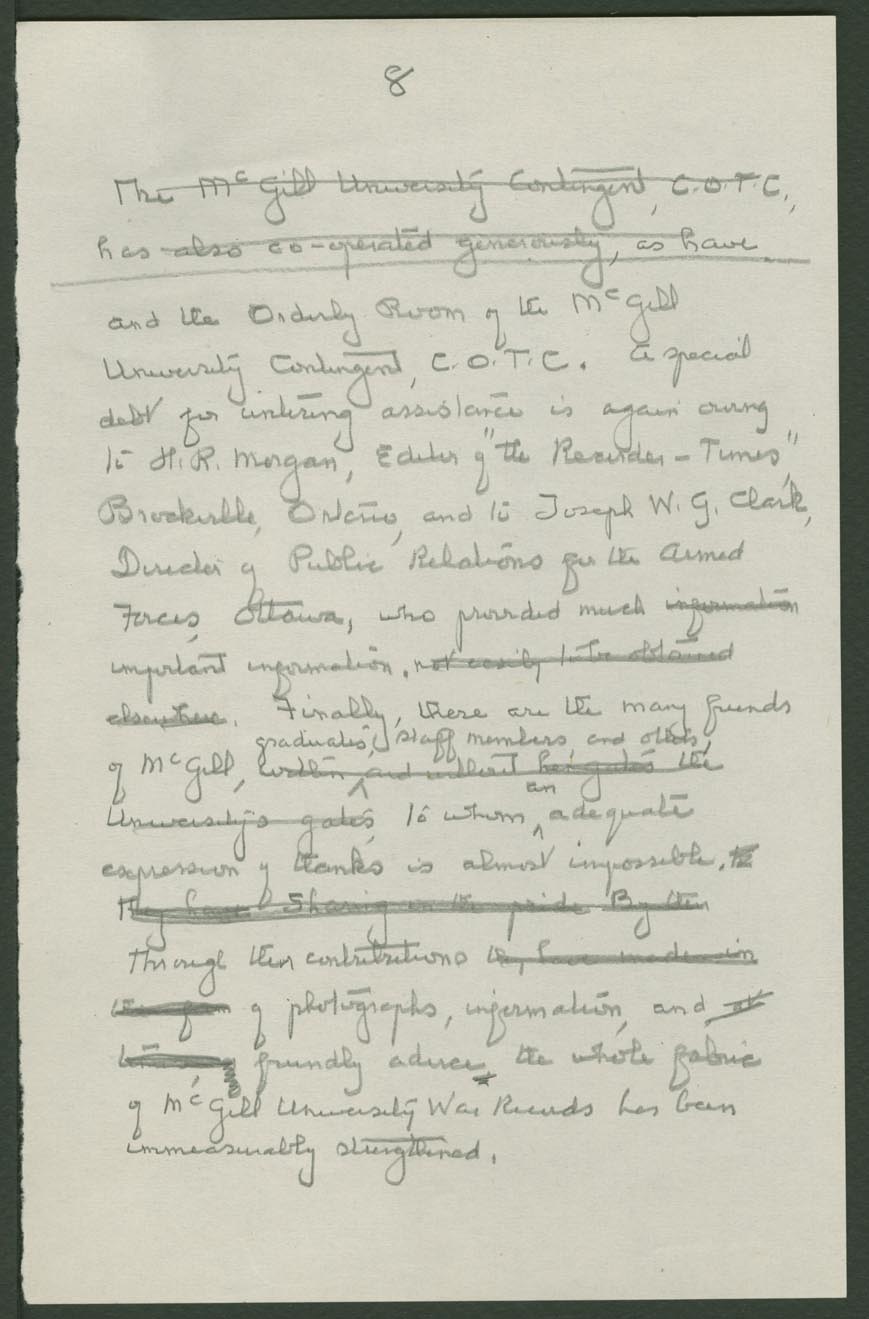 8
The McGill University Contingent, C.O.T.C.,
has also co-operated generously, as have
and the Orderly Room of the McGill
University Contingent, C.O.T.C. A special
debt for untiring assistance is again owing
to H.R. Morgan, Editor of "the Recorder-Times",
Brockville, Ontario, and to Joseph W. G. Clark,
Director of Public Relations for the Armed
Forces, Ottawa, who provided much information
important information. not easily to be obtained
elsewhere. Finally, there are the many friends
graduates, staff members, and others,
of McGill, within and without her gates the
an
University's gates, to whom adequate
expression of thanks is almost impossible.
They have Sharing in the pride By their
Through their contributions they have made in
of photographs, information, and
friendly advice, the whole fabric
of McGill University War Records has been
immeasurably strengthened.